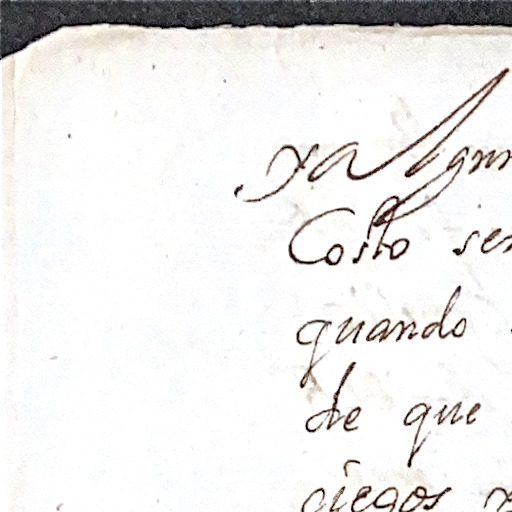 ya Agun
Costo sen
quando
de que
ciegos y